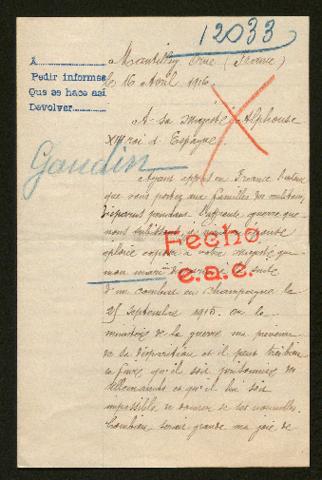 12033
à Mantilly Orne (France)
le 16 Avril 1916
A
Pedir informes
Que se hace así
Devolver
A Sa Majesté Alphonse
XIII roi d'Espagne
Gaudin
Ayant appris en France
que vous portez aux familles des militaires
disparus pendant l'affreuse guerre que
nous
exposer à votre Majesté que
mon mari
d'un combat en Champagne le
25 Septembre 1915. On le
ministère de la guerre m'a prévenu
de sa disparition et il peut très bien
se faire qu'il soit prisonnier des
Allemands et qu'il lui soit
impossible de donner de ses nouvelles
Combien serait grande ma joie de
Fecho
e.a.e.